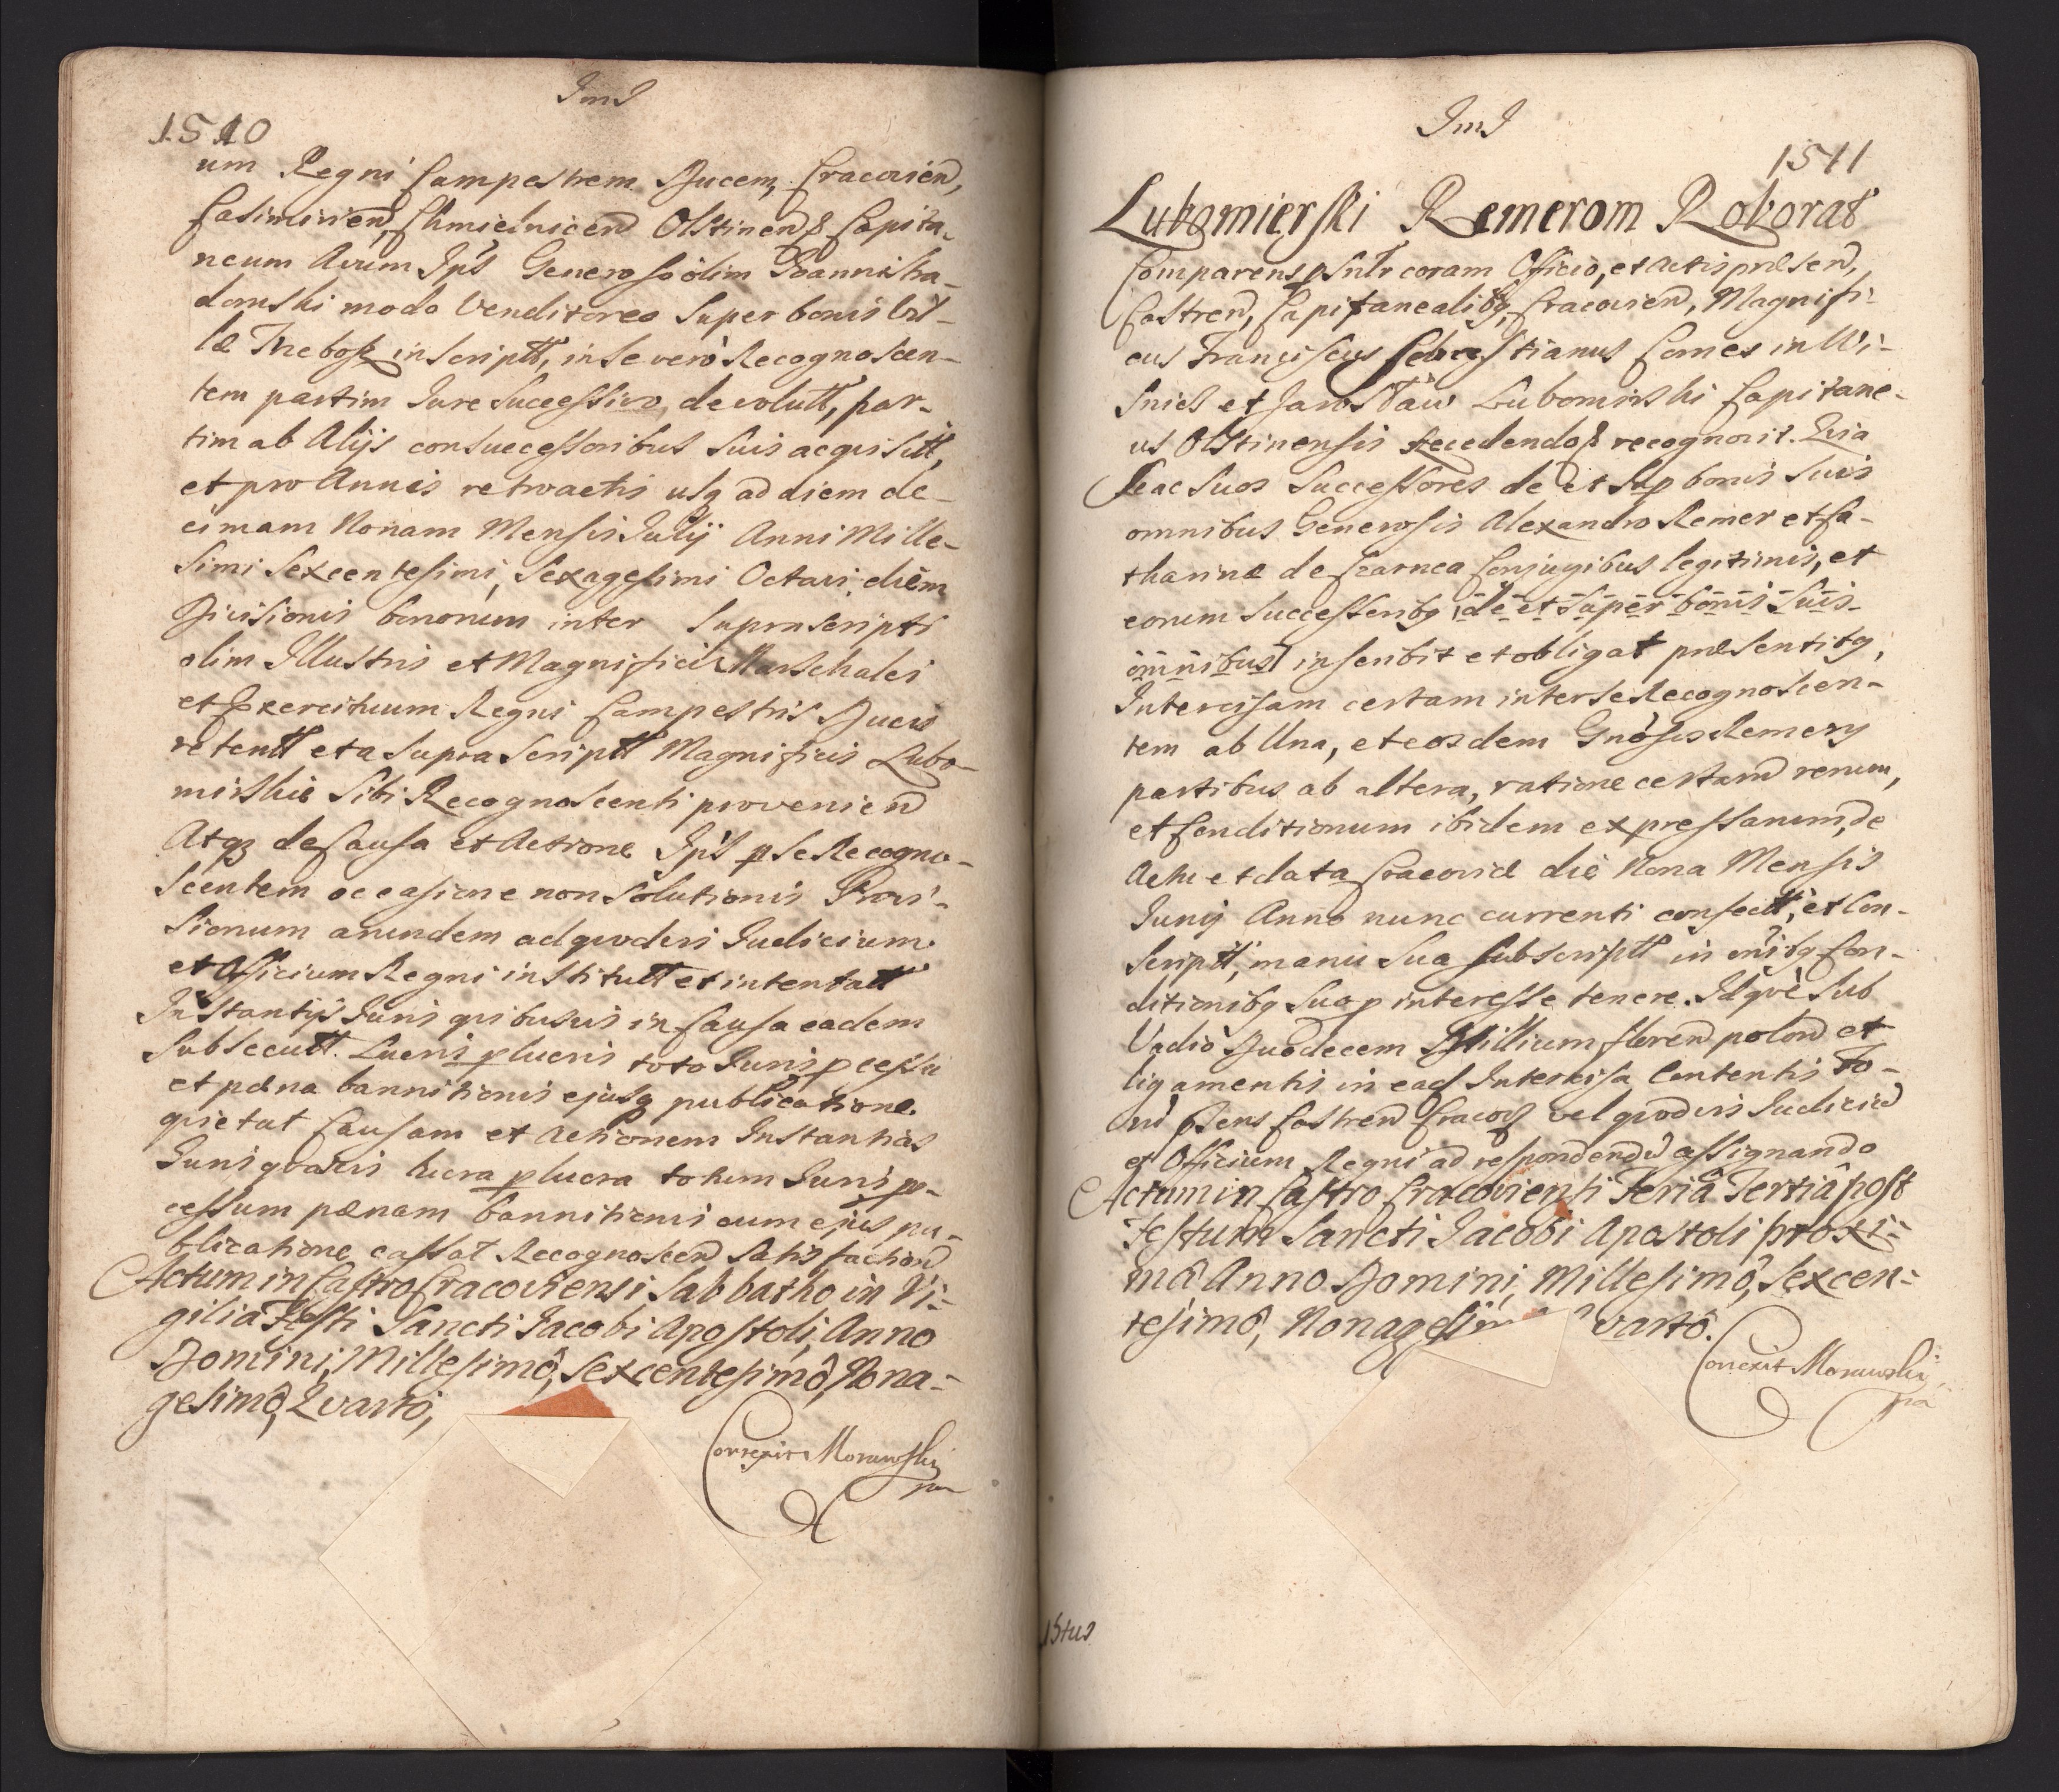 ImI
1510
um Regni Campestrem Ducem, Cracovien,
Casimirien, Chmielnicen Olstinen & Capita-
neum Avum Ips Generoso olim Joanni Stra-
domski modo Venditores super bonis Vil-
læ Trebosz inscriptt, in se verò Recognoscen-
tem partim Jure Successivo devolutt, par-
tim ab Alijs consuccessoribus suis acquisitt,
et pro Annis retroactis usq ad diem de-
cimam Nonam Mensis Julij Anni Mille-
simi Sexcentesimi, Sexagesimi Octavi, diem
Divisionis bonorum inter suprascripti
olim Illustris et Magnifici Marschalci
et Exercituum Regni Campestris Ducis
retentt et a supra scriptt Magnificis Lubo-
mirskie sibi Recognoscenti provenien
Atq de Causa et Actione Ips p se Recogno-
scentem occasione non solutionis Provi-
sionum arundem ad qvodvis Judicium
et Officium Regni institutt et intentatt
Instantijs Juris qvibusvis in Causa eadem
subsecutt. Lucris plucris toto Juris pcessu
et pæna bannitionis ejusq publicatione.
qvietat Causam et Actionem Instantias
Juris qvasvis lucra plucra totum Juris p-
cessum pænam bannitionis cum ejus pu-
blicatione cassat Recognoscen satisfaction
Actum in Castro Cracoviensi Sabbatho in Vi-
gilia Festi Sancti Jacobi Apostoli, Anno
Domini, Millesimô, Sexcentesimô, Nona-
gesimô, Qvartô,
Correxit Morawski
mp
ImI
1511
Lubomierski Remerom Roborat
Comparens psntr coram Officio, et actis præsen,
Castren, Capitanealibq Cracovien, Magnifi-
cus Franciscus Sebastianus Comes in Wi-
snicz et Jarosław Lubomirski Capitane-
us Olstinensis recedendo & recognovit. Qvia
se ac suos Successores de et sup bonis suis
omnibus Generosis Alexandro Remer et Ca-
tharinæ de Czarnca Conjugibus legitimis, et
eorum Successoribq de et super bonis suis
omnibus inscribit et obligat præsentibq,
Intercisam certam inter se Recognoscen-
tem ab Una, et eosdem Gnosos Remery
partibus ab altera, ratione certarum rerum,
et Conditionum ibidem expressarum, de
Actu et data Cracoviæ die Nona Mensis
Junij Anno nunc currenti confectt, et Con-
scriptt, manu sua subscriptt in omibq Con-
ditionibq suo p interesse tenere. Idqvè sub
Vadiò Duodecem Millium floren polon et
ligamentis in ead Intercisa Contentis Fo-
rum psens Castren Cracov vel qvodvis Judiciu
et Officium Regni ad respondendu assignando
Actum in Castro Cracoviensi Feriâ Tertiâ post
Festum Sancti Jacobi Apostoli proxi-
mâ Anno Domini, Millesimô, Sexcen-
tesimô, Nonagesim vartô.
Correxit Morawski
mp
istus